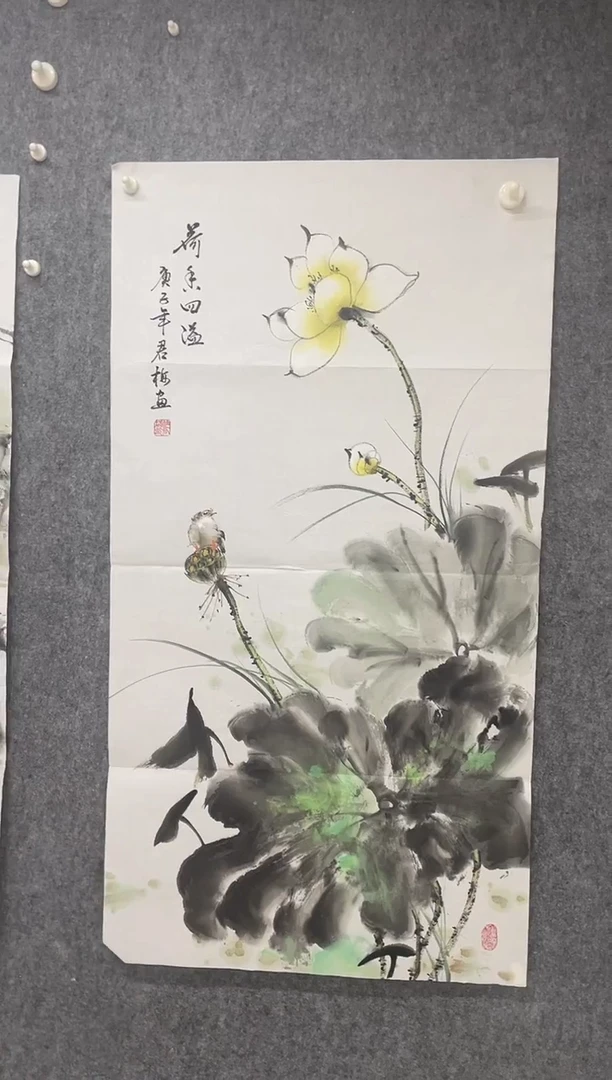 荷香四溢
庚子年君梅画